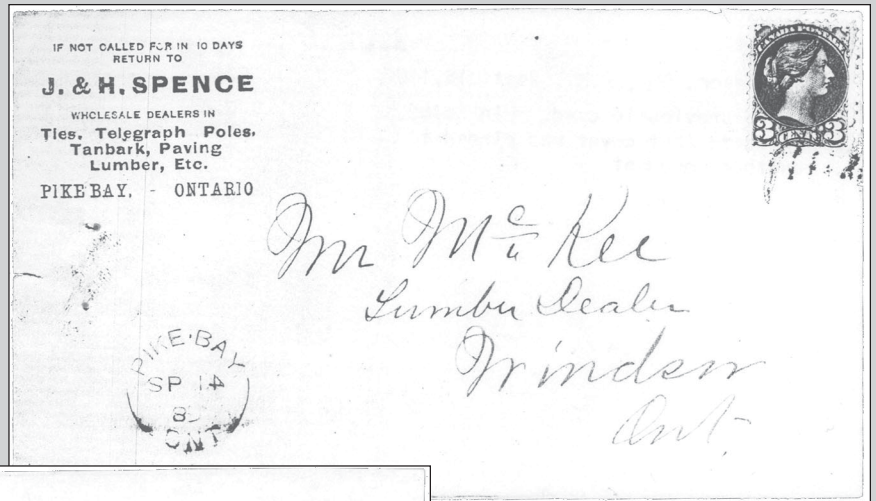 IF NOT CALLED FOR IN 10 DAYS
RETURN TO
J. & H. SPENCE
WHOLESALE DEALERS IN
Ties, Telegraph Poles,
Tanbark, Paving
Lumber, Etc.
PIKE BAY, - ONTARIO
CANADA POSTAGE
3 CENTS 3
Mr McKee
Lumber Dealer
Windsor
Ont
PIKE·BAY
SP 14
ONT